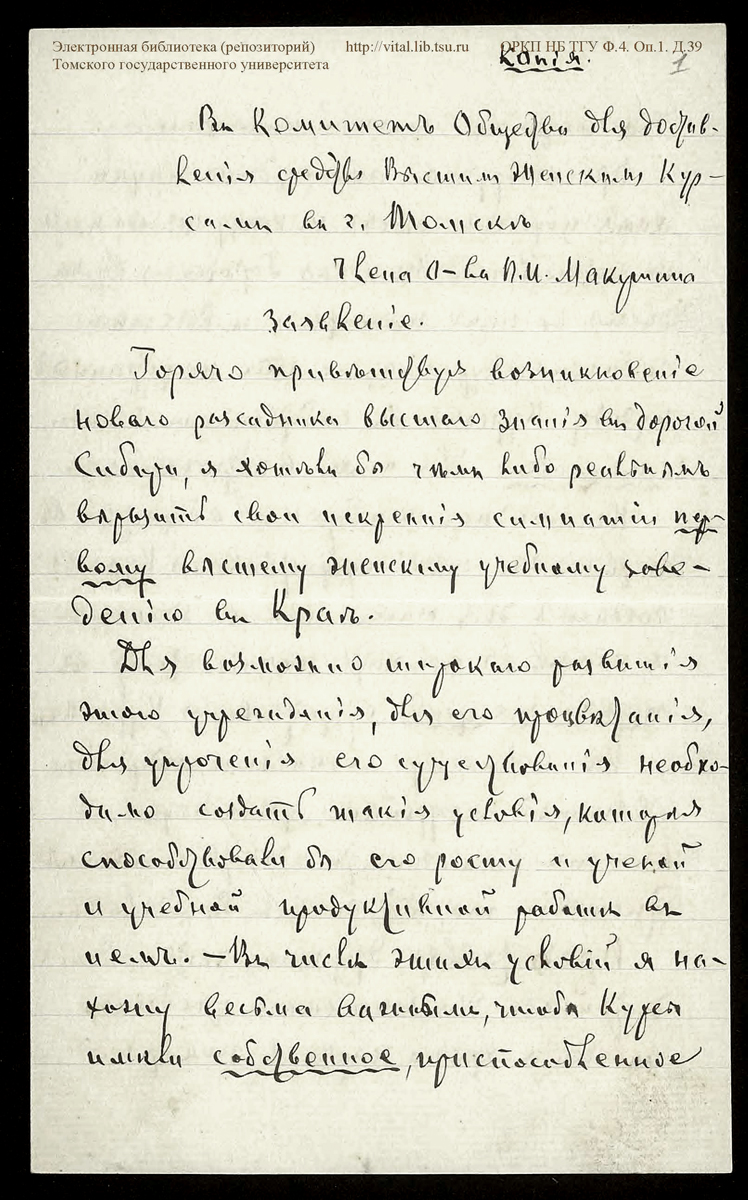 Электронная библиотека (репозиторий) http://vital.lib.tsu.ru ОРКП НБ ТГУ Ф.4. Оп.1. Д.39
Томского государственного университета
Копія.
1
Въ Комитетъ Общества для достав-
ленія средствъ Высшимъ Женскимъ Кур-
самъ въ г. Томскѣ
Члена О-ва П.И. Макушина
Заявленіе.
Горячо привѣтствуя возникновеніе
новаго разсадника высшаго знанія въ дорогой
Сибири, я хотѣлъ бы чѣмъ либо реальнымъ
выразить свои искреннія симпатіи пер-
вому высшему женскому учебному заве-
денію въ Краѣ.
Для возможно широкаго развитія
этого учрежденія, для его процвѣтанія,
для упроченія его существованія необхо-
димо создать такія условія, которыя
способствовали бы его росту и ученой
и учебной продуктивной работѣ въ
немъ. – Въ числѣ этихъ условій я на-
хожу весьма важнымъ, чтобы Курсы
имѣли собственное, приспособленное